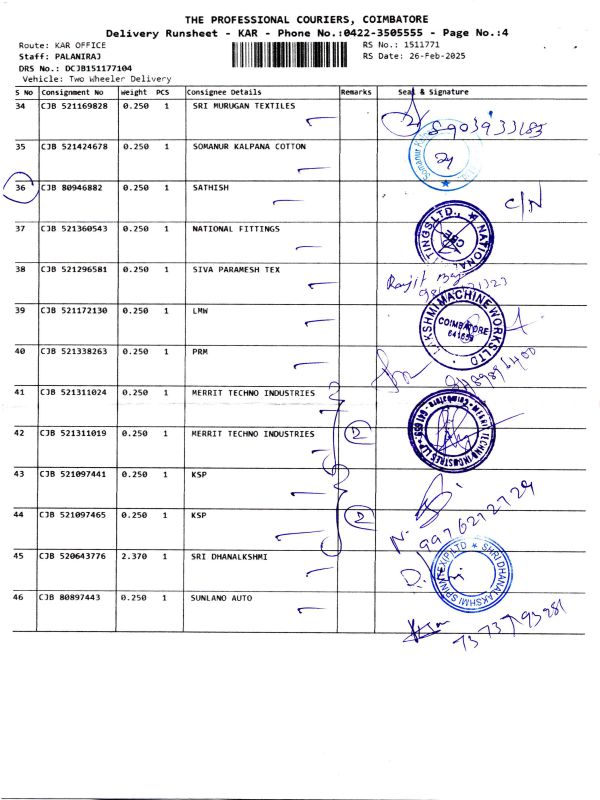 THE PROFESSIONAL COURIERS, COIMBATORE
Delivery Runsheet - KAR - Phone No.:0422-3505555 - Page No.:4
Route: KAR OFFICE RS No.: 1511771
Staff: PALANIRAJ RS Date: 26-Feb-2025
DRS No.: DCJB151177104
Vehicle: Two Wheeler Delivery
S No Consignment No Weight PCS Consignee Details Remarks Seal & Signature
34 CJB 521169828 0.250 1 SRI MURUGAN TEXTILES
35 CJB 521424678 0.250 1 SOMANUR KALPANA COTTON
36 CJB 80946882 0.250 1 SATHISH C/N
37 CJB 521360543 0.250 1 NATIONAL FITTINGS
TINGS LTD., ★ NATIONAL
CBE
38 CJB 521296581 0.250 1 SIVA PARAMESH TEX
Ranjit
39 CJB 521172130 0.250 1 LMW
KSHMI MACHINE WORKS LTD
COIMBATORE
40 CJB 521338263 0.250 1 PRM
41 CJB 521311024 0.250 1 MERRIT TECHNO INDUSTRIES
42 CJB 521311019 0.250 1 MERRIT TECHNO INDUSTRIES 2
MERRIT TECHNO INDUSTRIES LLP Coimbatore
43 CJB 521097441 0.250 1 KSP
44 CJB 521097465 0.250 1 KSP 2
9976272729
45 CJB 520643776 2.370 1 SRI DHANALKSHMI
★ SHRI DHANALAKSHMI SPINNTEX(P)LTD
46 CJB 80897443 0.250 1 SUNLANO AUTO
7373793981